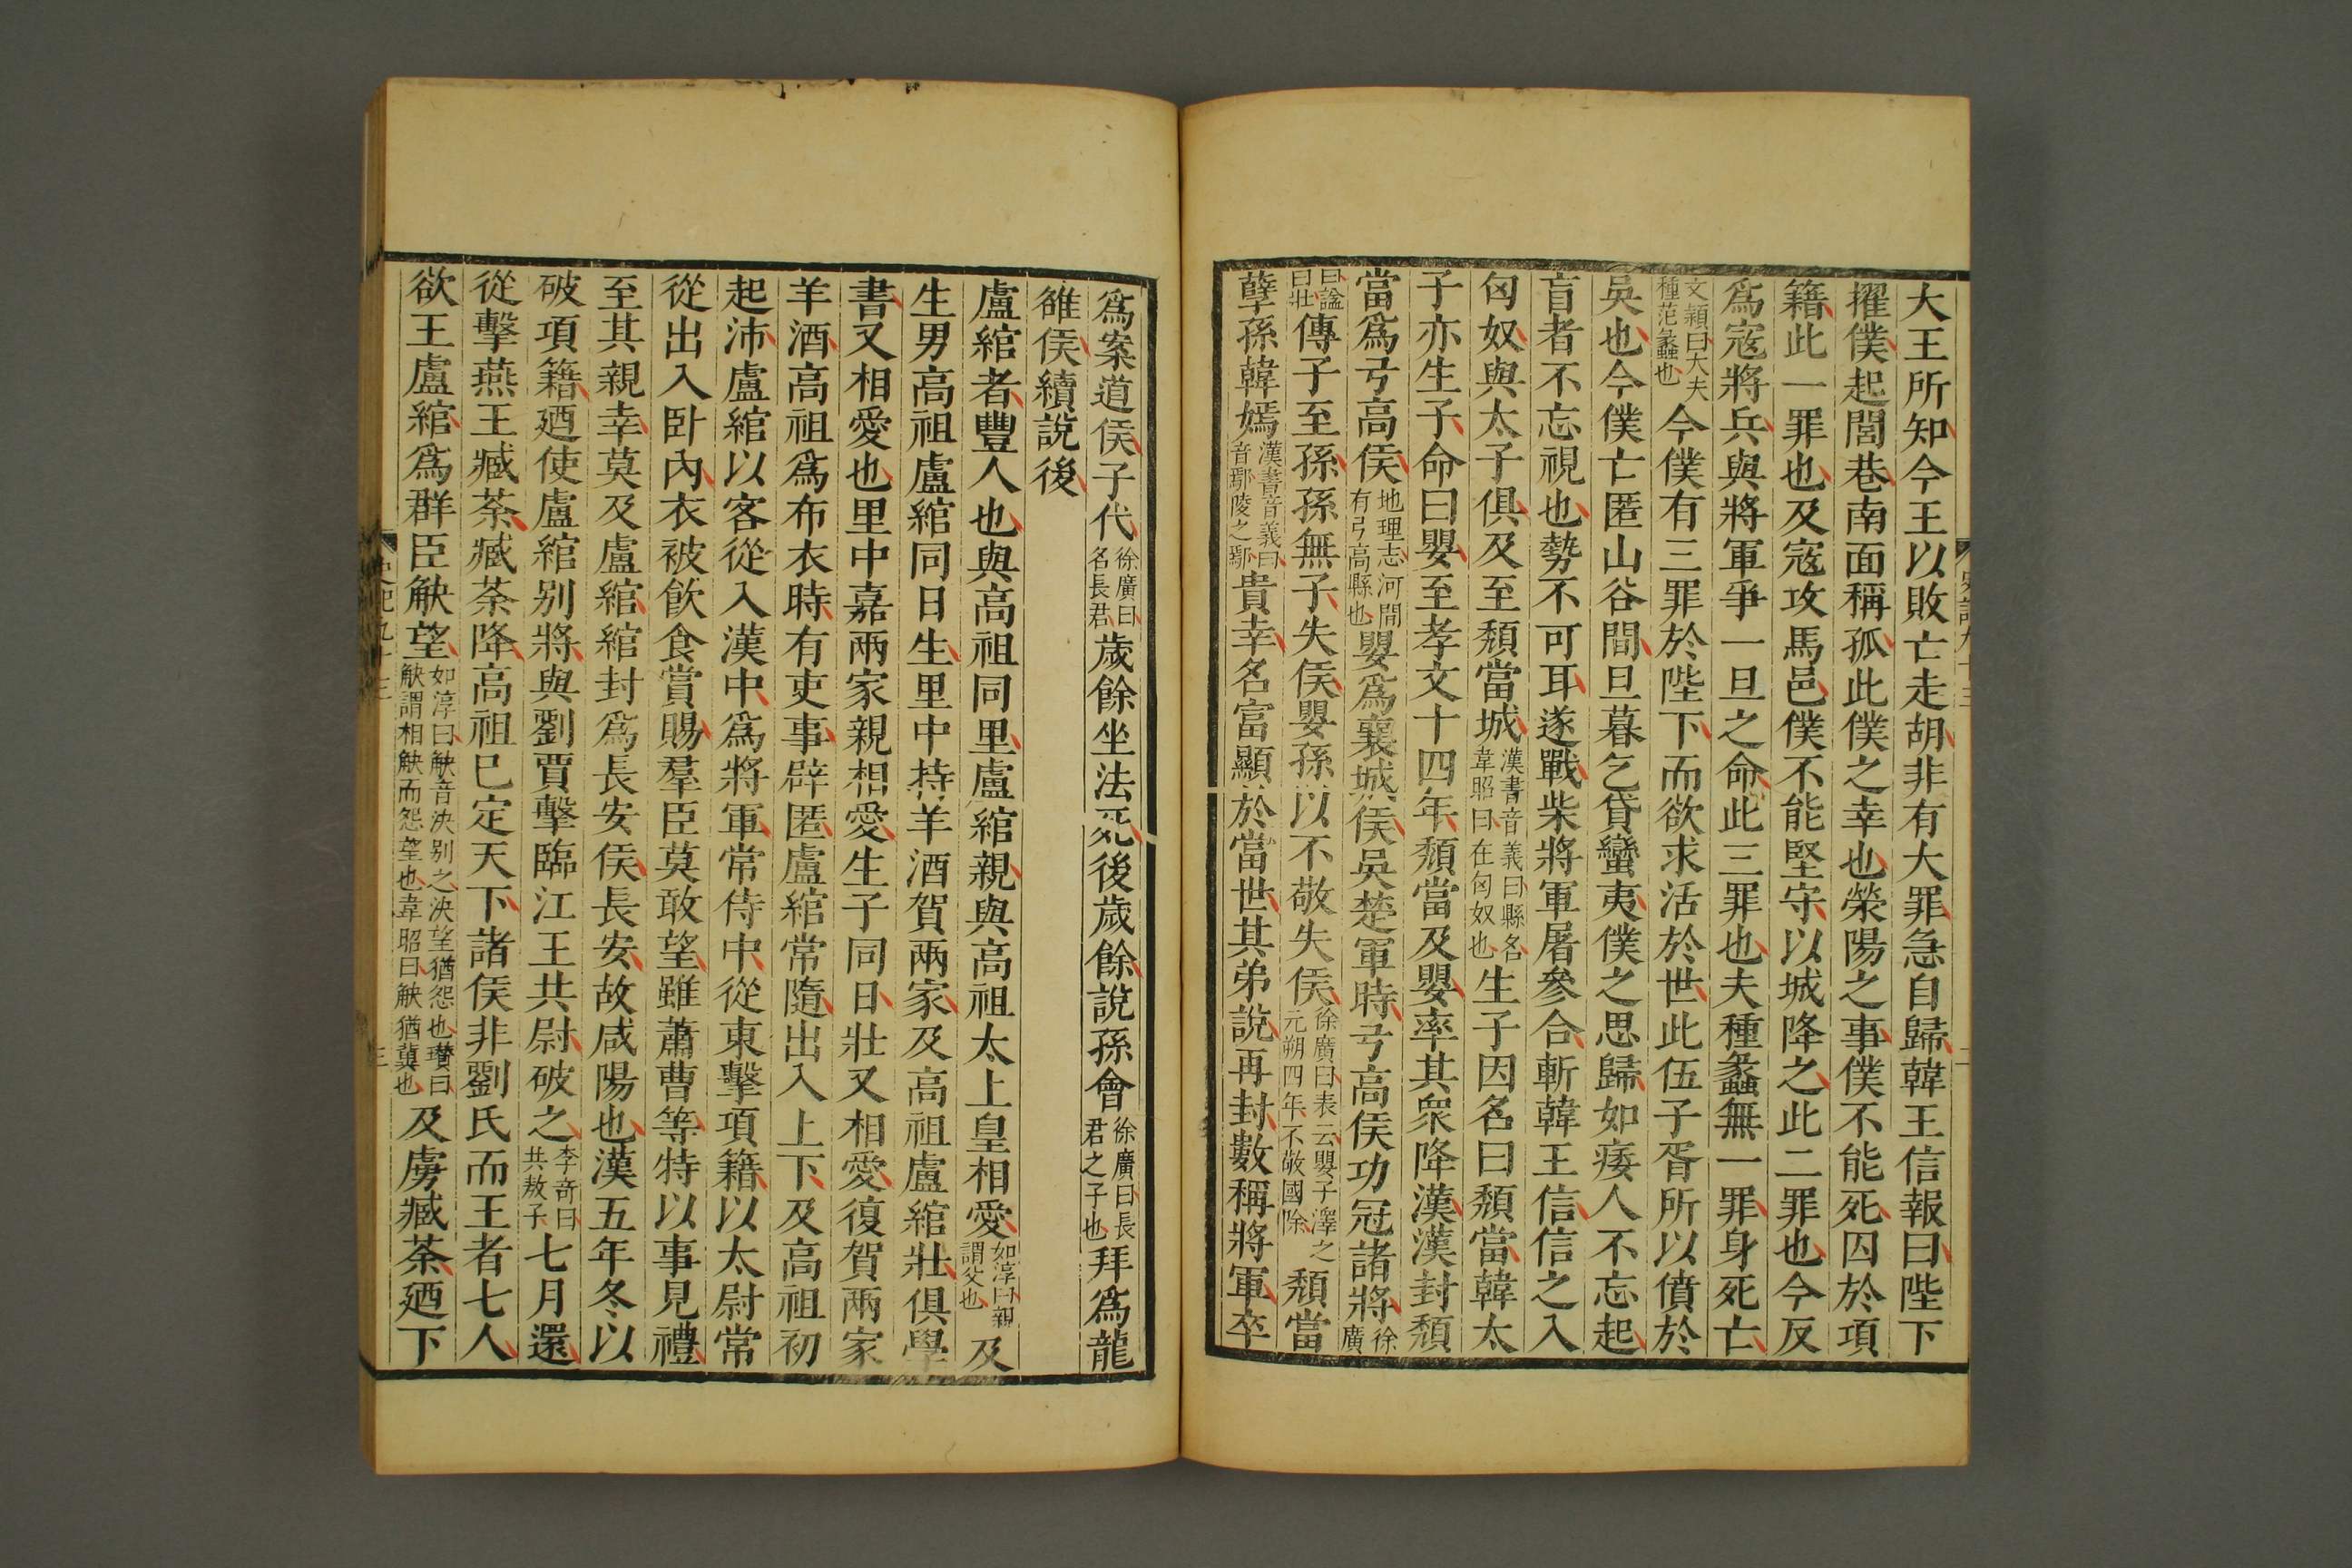 大王所知今王以敗亡走胡非有大罪急自歸韓王信報曰陛下
擢僕起閭巷南面稱孤此僕之幸也榮陽之事僕不能死囚於項
籍此一罪也及寇攻馬邑僕不能堅守以城降之此二罪也今反
爲寇將兵與將軍爭一旦之命此三罪也夫種蠡無一罪身死亡
文穎曰大夫種范蠡也今僕有三罪於陛下而欲求活於世此伍子胥所以僨於
吳也今僕亡匿山谷間旦暮乞貸蠻夷僕之思歸如痿人不忘起
盲者不忘視也勢不可耳遂戰柴將軍屠參合斬韓王信信之入
匈奴與太子俱及至頹當城漢書音義曰縣名韋昭曰在匈奴也生子因名曰頹當韓太
子亦生子命曰嬰至孝文十四年頹當及嬰率其衆降漢漢封頹
當爲弓高侯地理志河間有弓高縣也嬰爲襄城侯吳楚軍時弓高侯功冠諸將徐廣
曰諡曰壯傳子至孫孫無子失侯嬰孫以不敬失侯徐廣曰表云嬰子澤之元朔四年不敬國除頹當
孽孫韓嫣漢書音義曰音鄢陵之鄢貴幸名富顯於當世其弟說再封數稱將軍卒
爲案道侯子代徐廣曰名長君歲餘坐法死後歲餘說孫會徐廣曰長君之子也拜爲龍
雒侯續說後
盧綰者豐人也與高祖同里盧綰親與高祖太上皇相愛如淳曰親謂父也及
生男高祖盧綰同日生里中持羊酒賀兩家及高祖盧綰壯俱學
書又相愛也里中嘉兩家親相愛生子同日壯又相愛復賀兩家
羊酒高祖爲布衣時有吏事辟匿盧綰常隨出入上下及高祖初
起沛盧綰以客從入漢中爲將軍常侍中從東擊項籍以太尉常
從出入卧內衣被飲食賞賜羣臣莫敢望雖蕭曹等特以事見禮
至其親幸莫及盧綰綰封爲長安侯長安故咸陽也漢五年冬以
破項籍廼使盧綰别將與劉賈擊臨江王共尉破之李奇曰共敖子七月還
從擊燕王臧荼臧荼降高祖已定天下諸侯非劉氏而王者七人
欲王盧綰爲群臣觖望如淳曰觖音決別之決望猶怨也瓚曰觖謂相觖而怨望也韋昭曰觖猶冀也及虜臧荼廼下